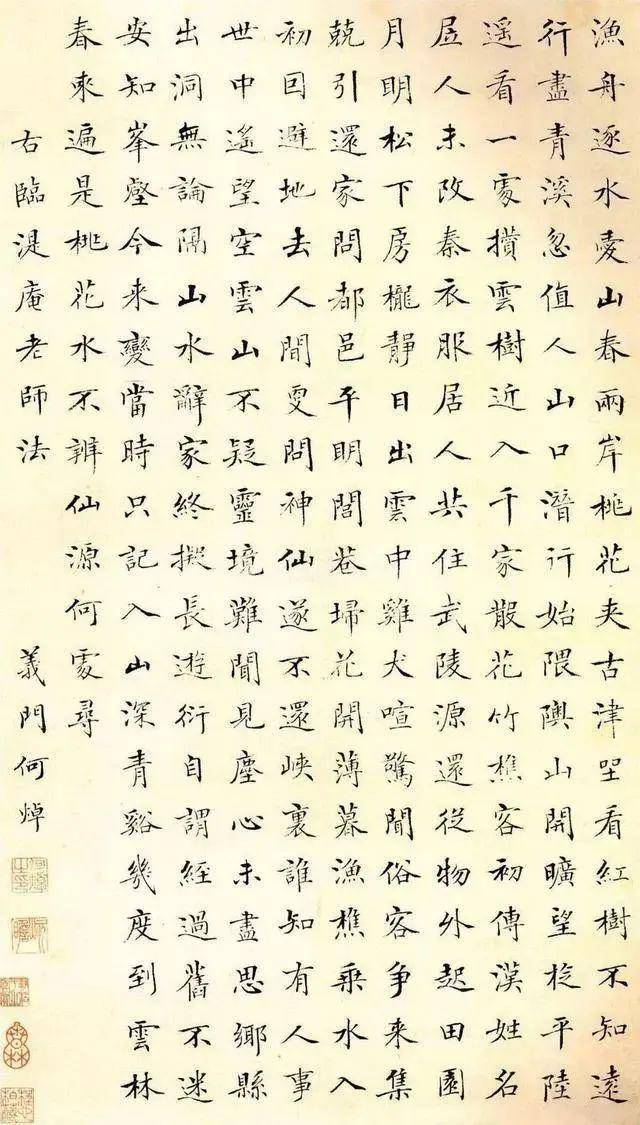 漁舟逐水愛山春兩岸桃花夾古津坐看紅樹不知遠
行盡青溪忽值人山口潛行始隈隩山開曠望旋平陸
遥看一處攢雲樹近入千家散花竹樵客初傳漢姓名
居人未改秦衣服居人共住武陵源還從物外起田園
月明松下房櫳靜日出雲中雞犬喧驚聞俗客爭来集
兢引還家問都邑平明閭巷埽花開薄暮漁樵乘水入
初因避地去人間更問神仙遂不還峽裏誰知有人事
世中遙望空雲山不疑靈境難聞見塵心未盡思鄉縣
出洞無論隔山水辭家終擬長遊衍自謂經過舊不迷
安知峯壑今来變當時只記入山深青谿幾度到雲林
春來遍是桃花水不辨仙源何處尋
右臨湜庵老師法 義門何焯